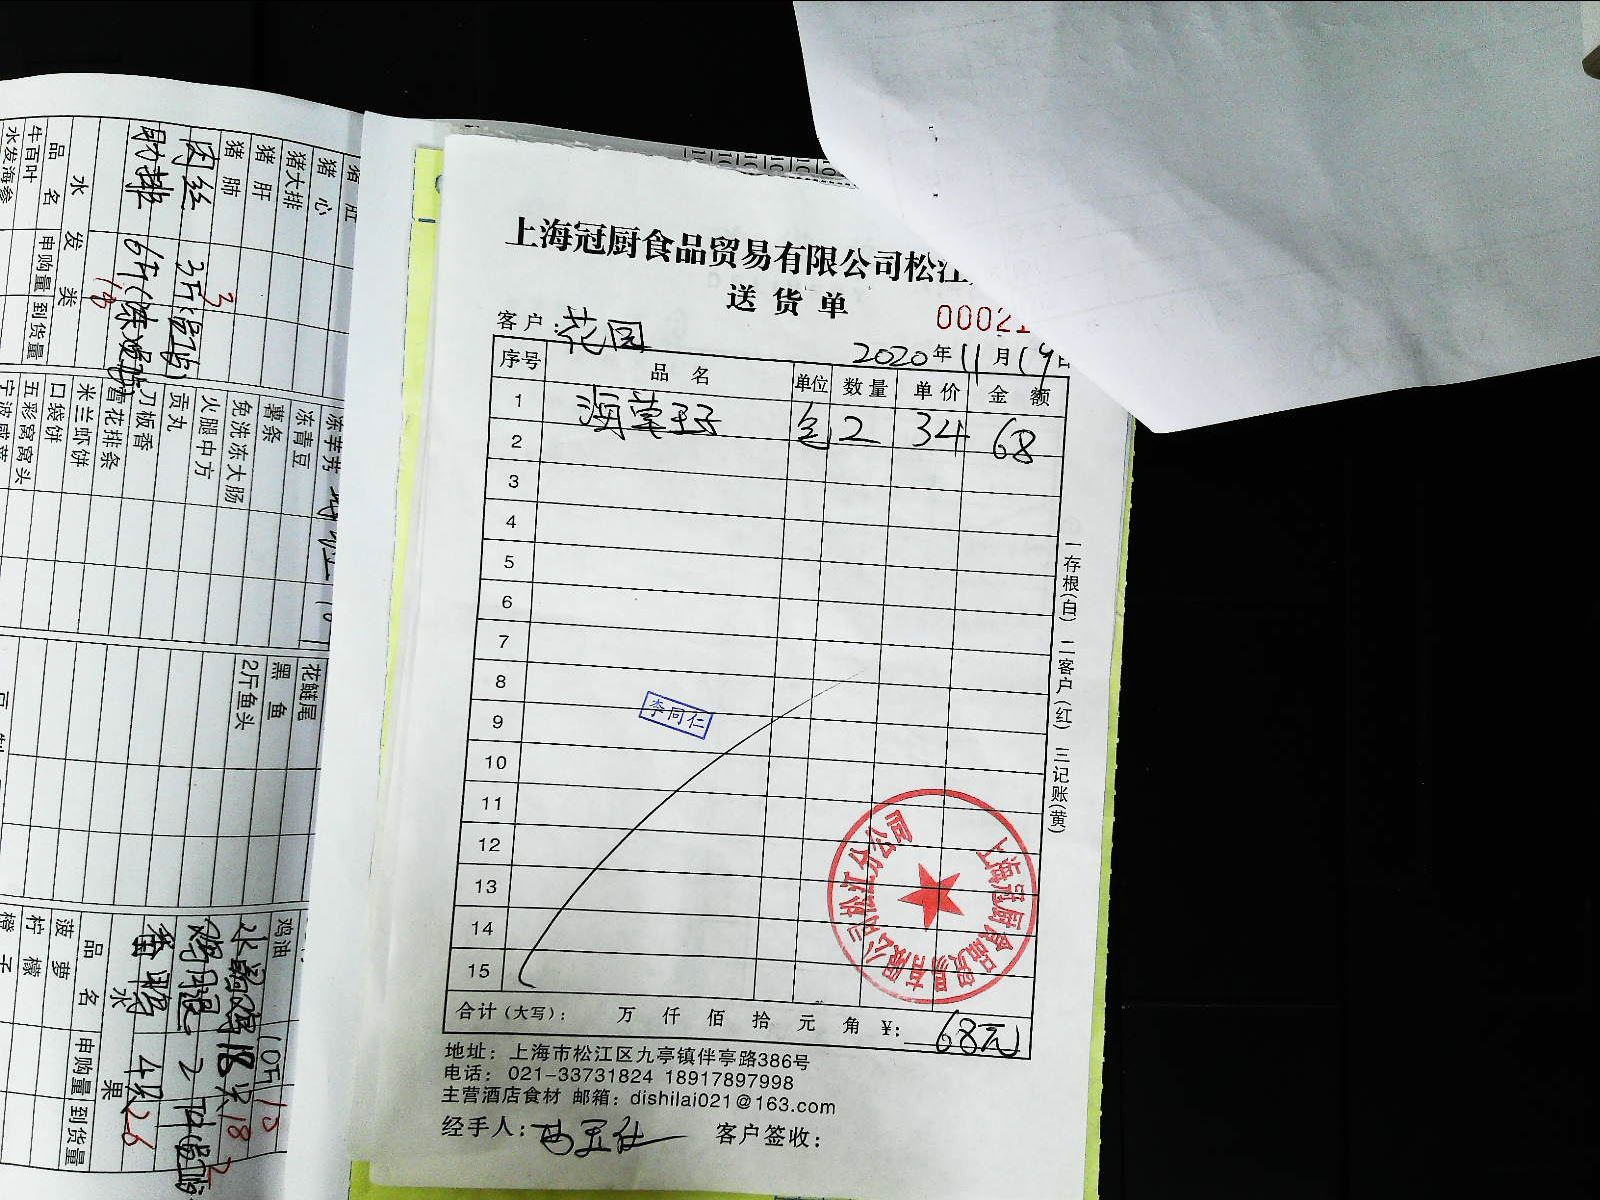 上海冠厨食品贸易有限公司松江
送货单
0002
客户:花园
2020年11月19日
序号 品名 单位 数量 单价 金额
1 包 2 34 68
2
3
4
5
6
7
8
9
10
11
12
13
14
15
李同仁
上海冠厨食品贸易有限公司松江分公司
合计(大写): 万 仟 佰 拾 元 角 ¥: 68元
地址: 上海市松江区九亭镇伴亭路386号
电话: 021-33731824 18917897998
主营酒店食材 邮箱: dishilai021@163.com
经手人: 客户签收:
一存根(白) 二客户(红) 三记账(黄)
猪肚
猪心
猪大排
猪肝
猪肺
肉丝 3斤 3
肋排 6斤
水发类
品名 申购量 到货量
牛百叶
水发海参
冻芋艿
冻青豆
薯条
免洗冻大肠
火腿中方
贡丸
刀板香
雪花排条
米兰虾饼
口袋饼
五彩窝窝头
宁波咸菜
花鲢尾
黑鱼
2斤鱼头
鸡油 10斤
水果
品名 申购量 到货量
菠萝
柠檬
橙子